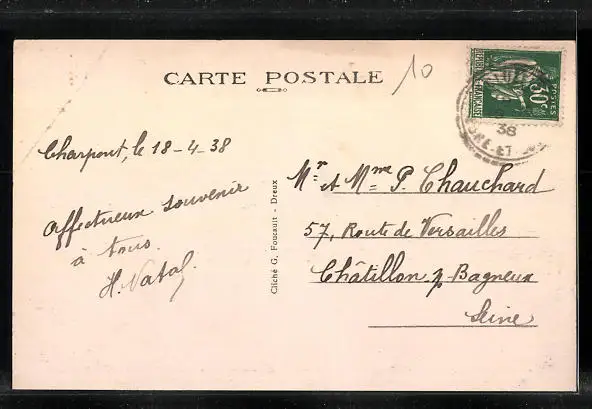 CARTE POSTALE
10
Charpont, le 18-4-38
Affectueux souvenir
à tous.
H. Natal.
Cliché G. Foucault - Dreux
Mr et Mme P. Chauchard
57, Route de Versailles
Châtillon p. Bagneux
Seine
REPUBLIQUE FRANCAISE
30c
POSTES
38